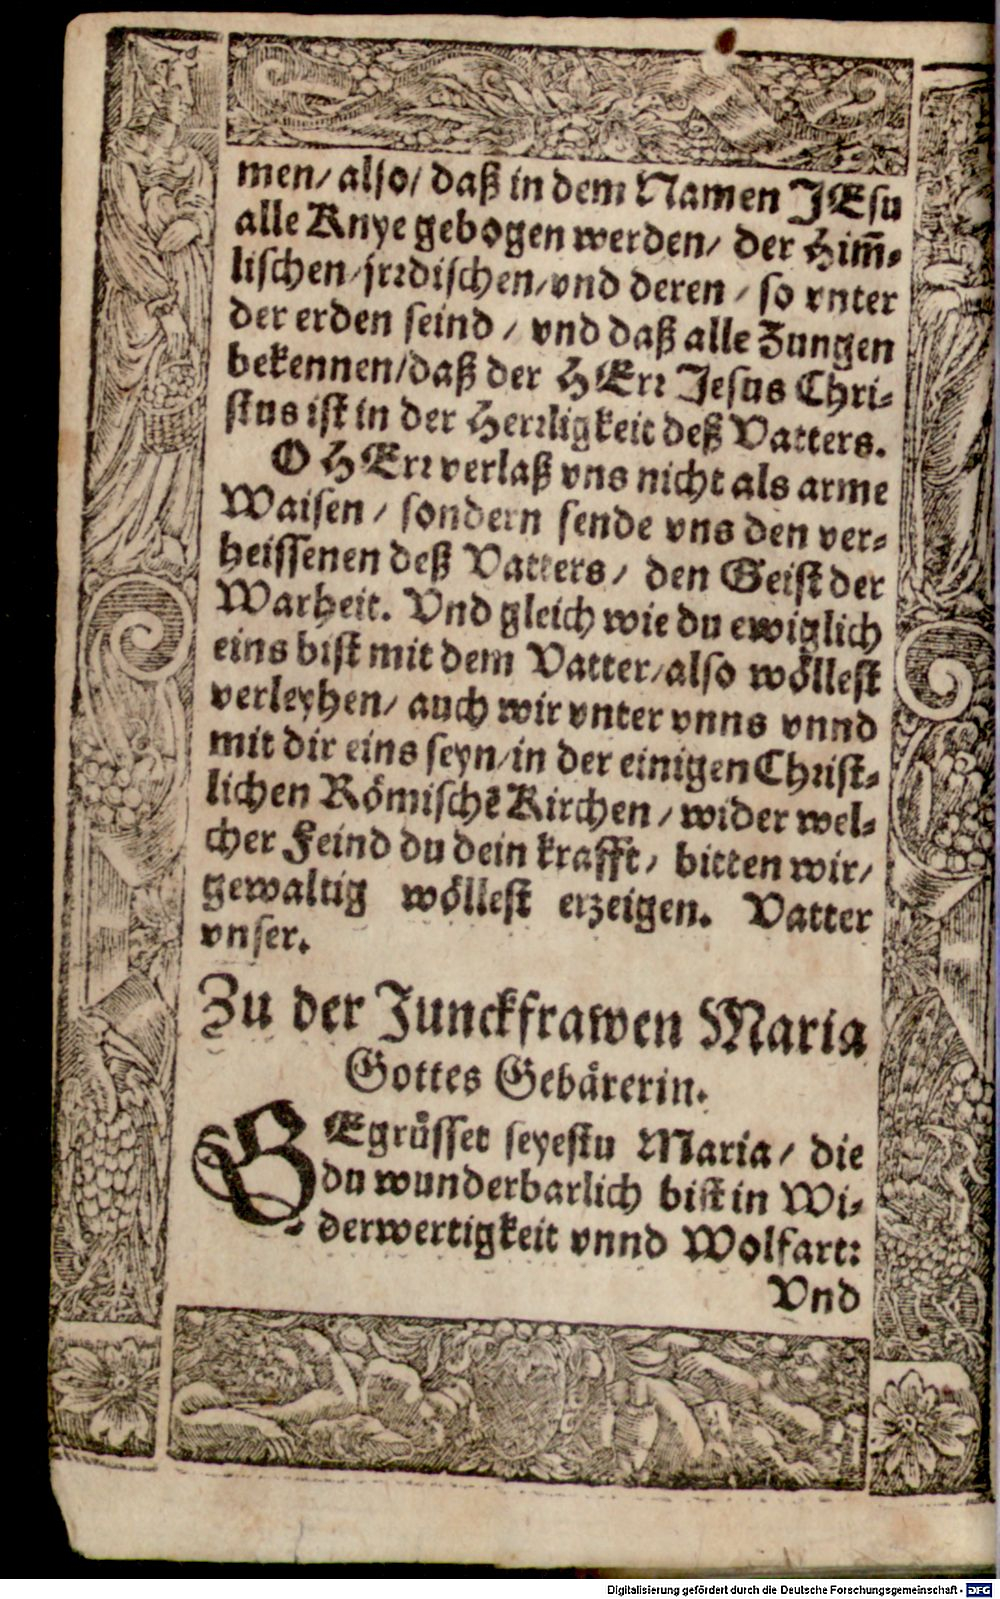 men/ also/ daß in dem Namen JEsu
alle Knye gebogen werden/ der Him̃-
lischen/ jrrdischen/ vnd deren / so vnter
der erden seind / vnd daß alle Zungen
bekennen/ daß der HErr Jesus Chri-
stus ist in der Herrligkeit deß Vatters.
O HErr verlaß vns nicht als arme
Waisen / sondern sende vns den ver-
heissenen deß Vatters/ den Geist der
Warheit. Vnd gleich wie du ewiglich
eins bist mit dem Vatter/ also wöllest
verleyhen/ auch wir vnter vnns vnnd
mit dir eins seyn/ in der einigen Christ-
lichen Römischẽ Kirchen / wider wel-
cher Feind du dein krafft/ bitten wir/
gewaltig wöllest erzeigen. Vatter
vnser.
Zu der Junckfrawen Maria
Gottes Gebärerin.
BEgrüsset seyestu Maria/ die
du wunderbarlich bist in Wi-
derwertigkeit vnnd Wolfart:
Vnd
Digitalisierung gefördert durch die Deutsche Forschungsgemeinschaft - DFG